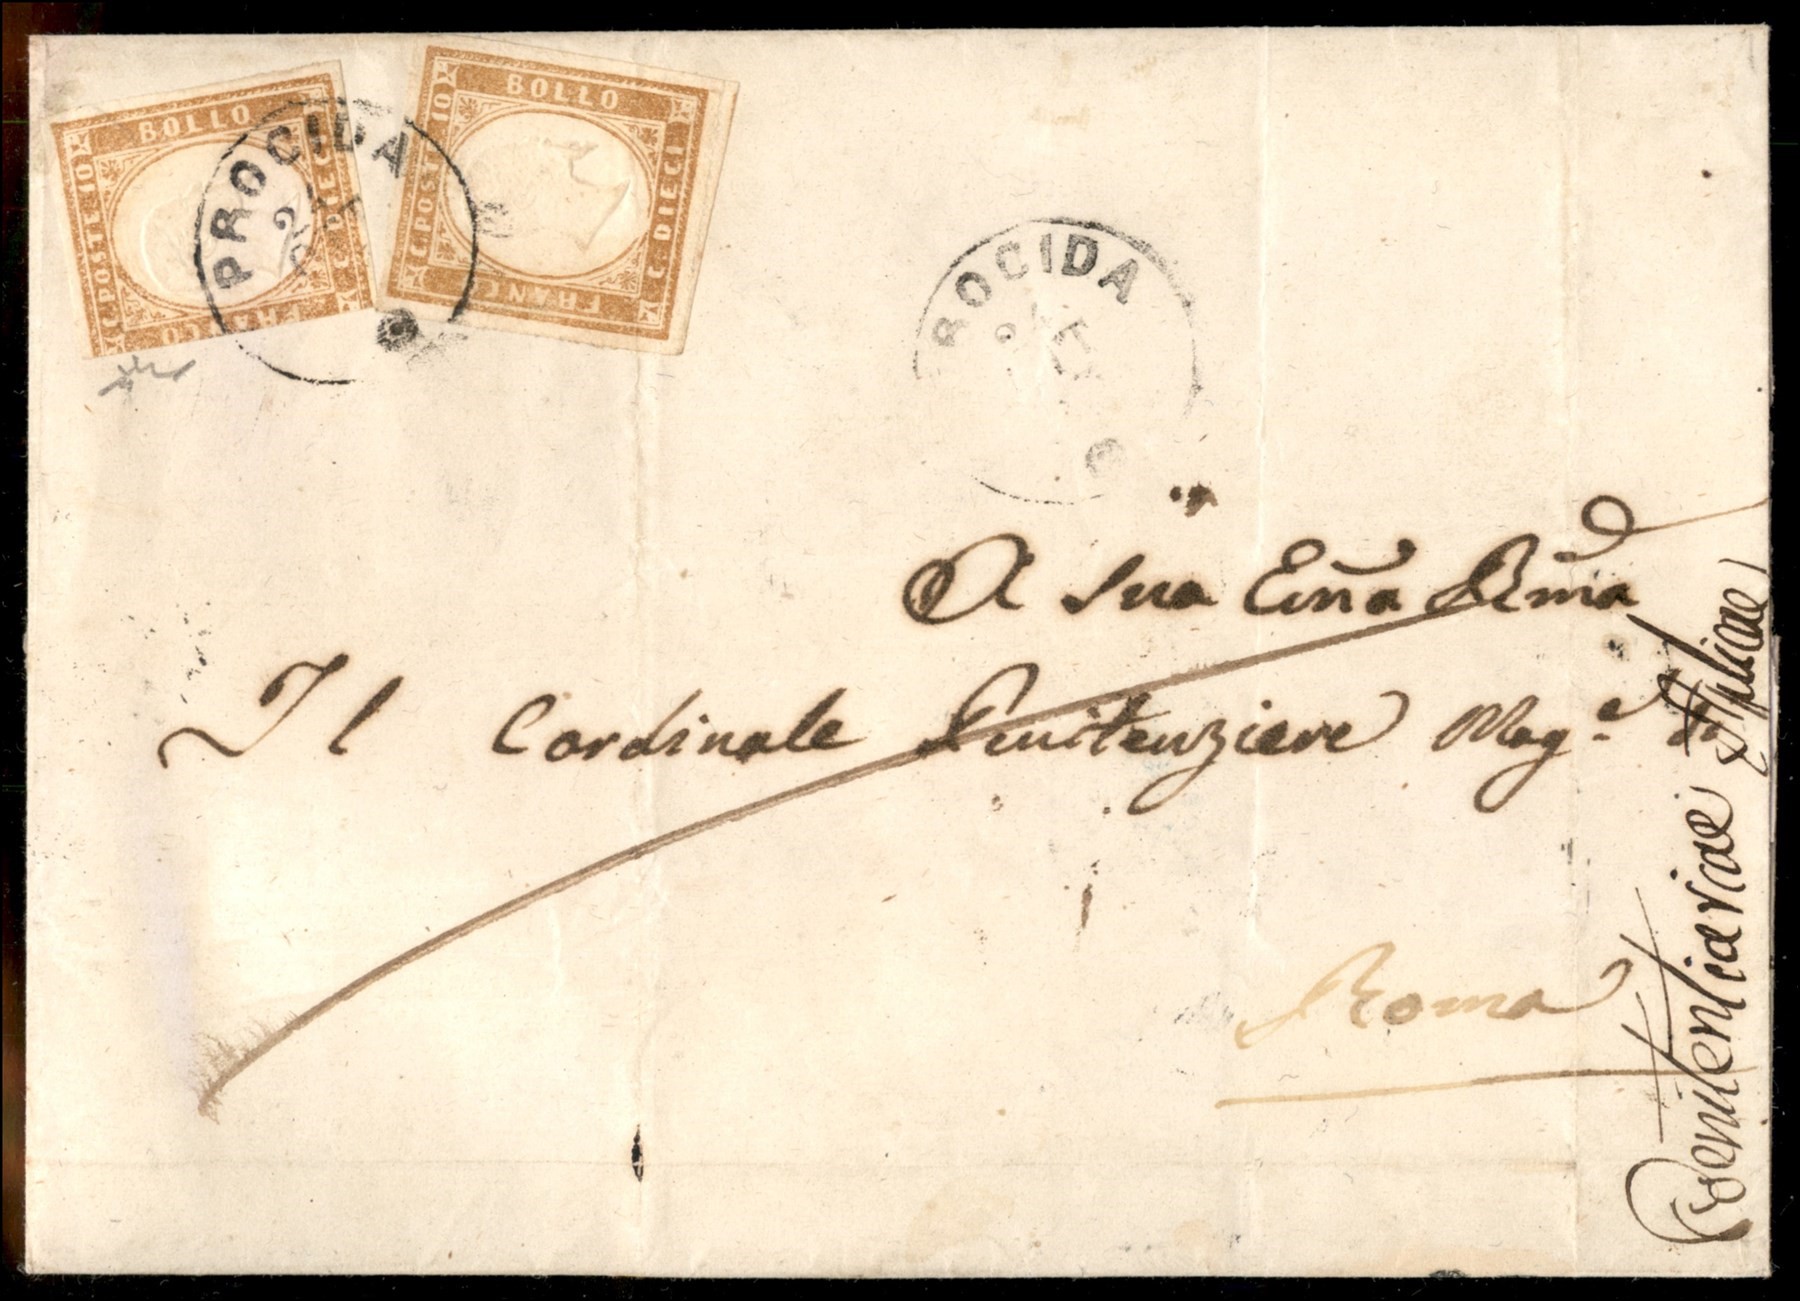 BOLLO
C. POSTE 10
C. DIECI
FRANCO
BOLLO
C. POSTE 10
C. DIECI
FRANCO
PROCIDA
ROCIDA
A Sua Emã Rmã
Il Cardinale Penitenziere Magᵉ
Roma
Penitentiariae